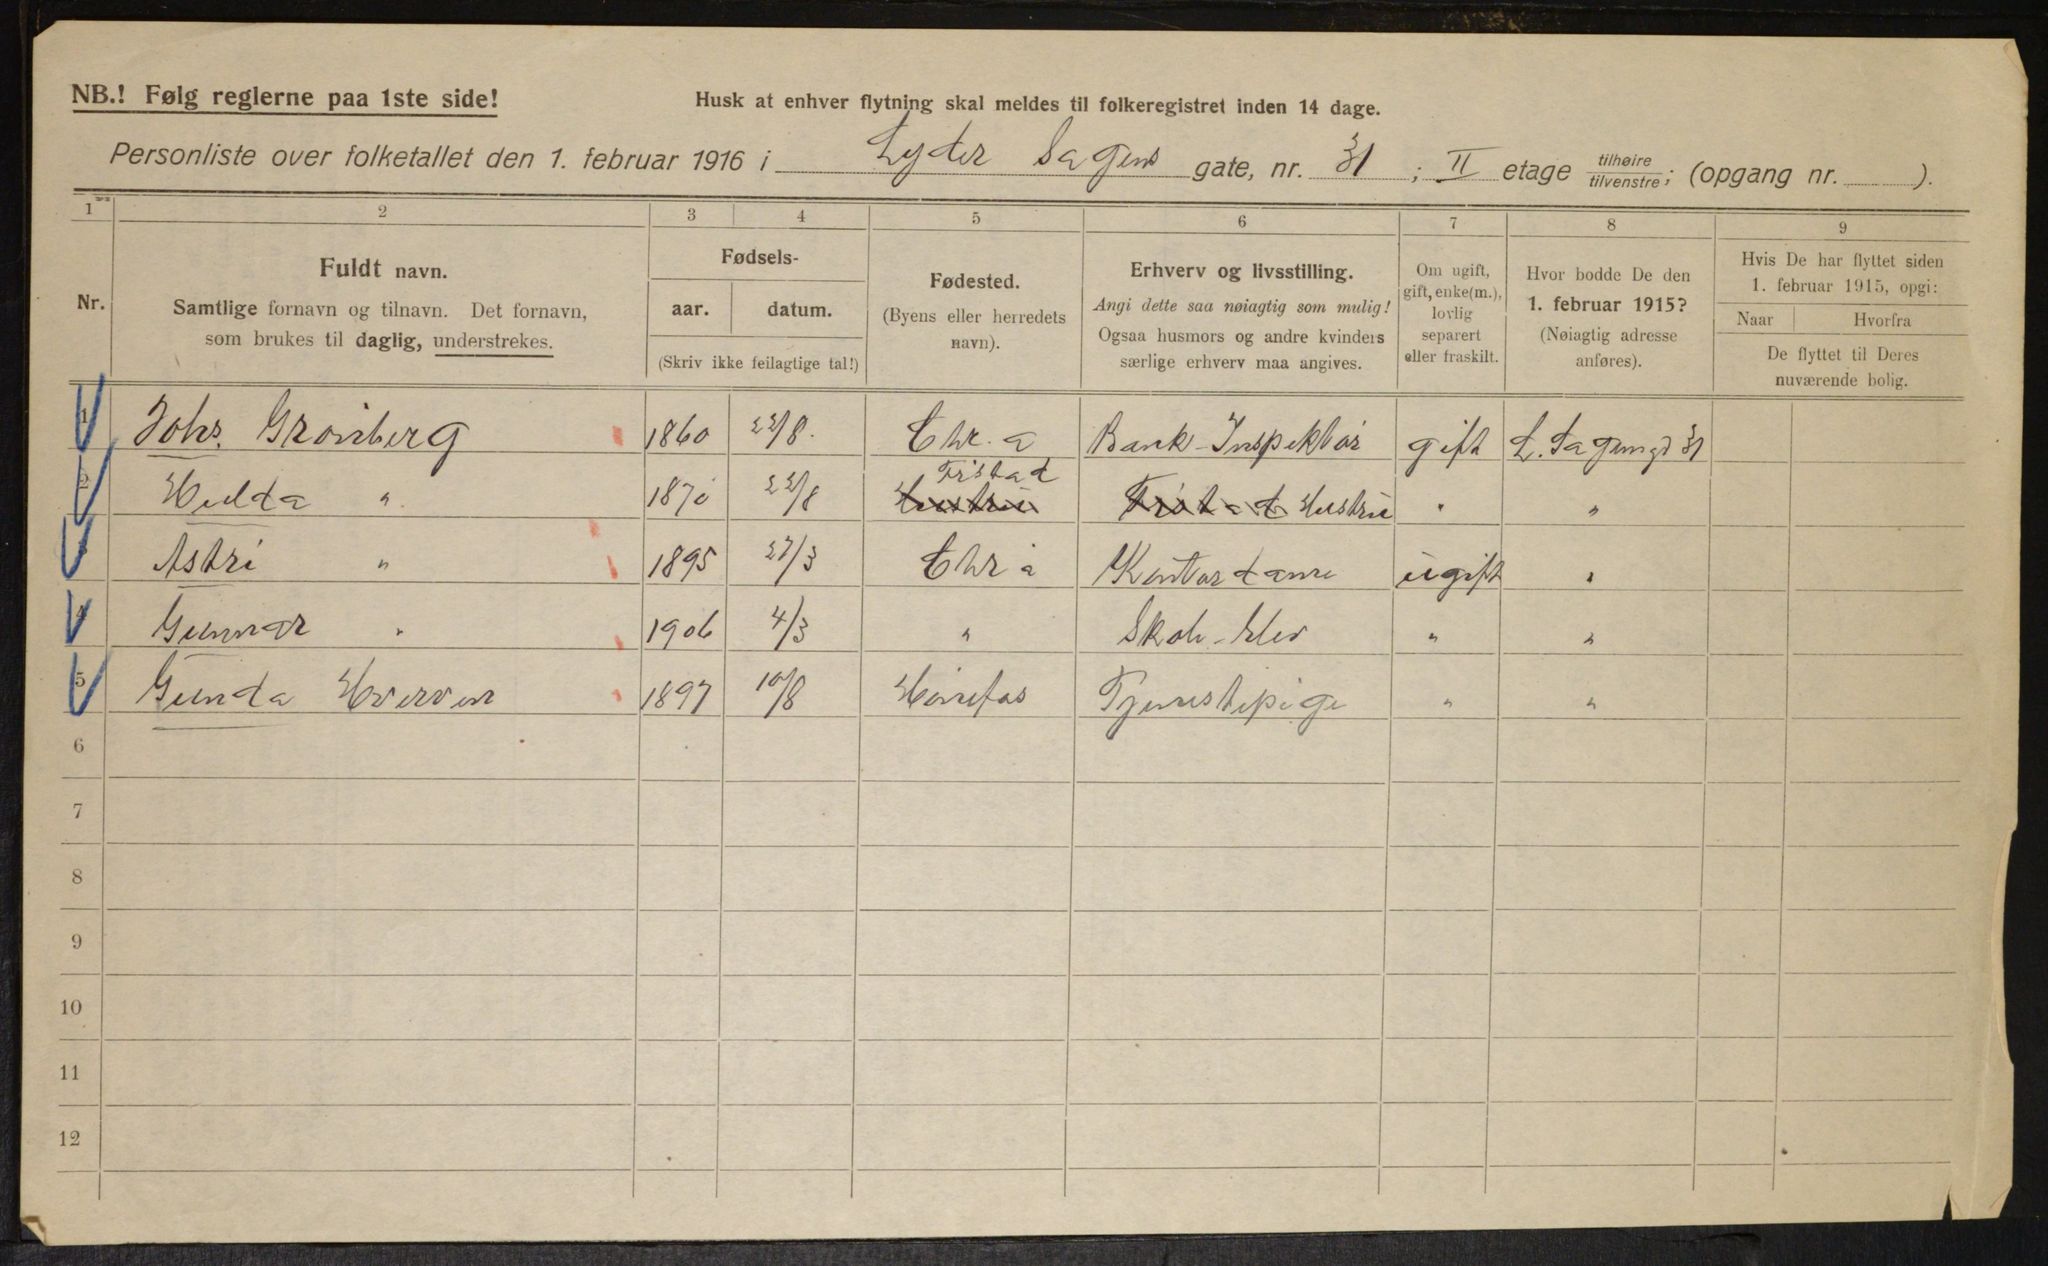 NB.! Følg reglerne paa 1ste side!
Husk at enhver flytning skal meldes til folkeregistret inden 14 dage.
Personliste over folketallet den 1. februar 1916 i Lyder Sagens gate, nr. 31; II etage tilhøire/tilvenstre; (opgang nr. ).
1 2 3 4 5 6 7 8 9
Nr.
Fuldt navn.
Samtlige fornavn og tilnavn. Det fornavn,
som brukes til daglig, understrekes.
Fødsels-
aar. datum.
(Skriv ikke feilagtige tal!)
Fødested.
(Byens eller herredets
navn).
Erhverv og livsstilling.
Angi dette saa nøiagtig som mulig!
Ogsaa husmors og andre kvinders
særlige erhverv maa angives.
Om ugift,
gift, enke(m.),
lovlig
separert
eller fraskilt.
Hvor bodde De den
1. februar 1915?
(Nøiagtig adresse
anføres).
Hvis De har flyttet siden
1. februar 1915, opgi:
Naar Hvorfra
De flyttet til Deres
nuværende bolig.
1 Johs. Grønberg 1860 22/8. Chr.a Bank-Inspektør gift L. Sagensgt 31
2 Hulda " 1870 22/8 Fristad Hustru Tristad Hustru " "
3 Astri " 1895 27/3 Chr a Kontordame ugift "
4 Gunnar " 1906 4/3 " Skole-Elev " "
5 Gunda Hverven 1897 10/8 Hønefos Tjenestepige " "
6
7
8
9
10
11
12